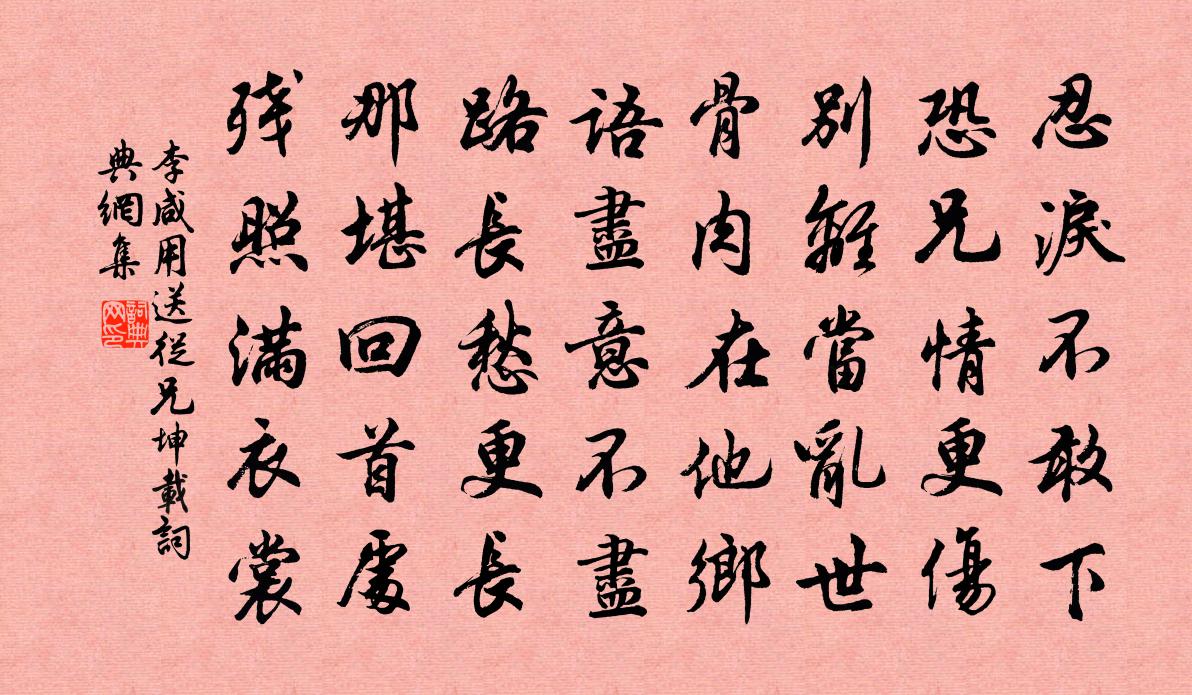 忍淚不敢下
恐兄情更傷
別離當亂世
骨肉在他鄉
語盡意不盡
路長愁更長
那堪回首處
残照滿衣裳
李咸用送從兄坤載詞
典網集
詞典网印